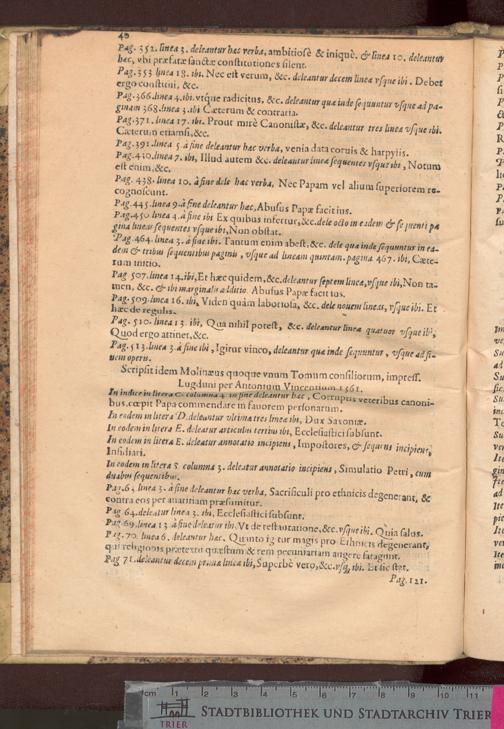 40
Pag. 352. linea 3. deleantur hæc verba, ambitiosè & iniquè. & linea 10. deleantur
hæc, vbi præfatæ sanctæ constitutiones silent.
Pag. 353 linea 18. ibi. Nec est verum, &c. deleantur decem linea vsque ibi. Debet
ergo constitui, &c.
Pag. 366. linea 4. ibi. vtque radicitus, &c. deleantur quæ inde sequuntur vsque ad pa-
ginam 368. linea 3. ibi Cæterum & contraria.
Pag. 371. linea 17. ibi. Prout mirè Canonistæ, &c. deleantur tres linea vsque ibi.
Cæterum etiamsi, &c.
Pag. 391. linea 5 à fine deleantur hæc verba, venia data coruis & harpyiis.
Pag. 430. linea 7. ibi, Illud autem &c. deleantur linea sequentes vsque ibi, Notum
est enim, &c.
Pag. 438. linea 10. à fine dele hæc verba, Nec Papam vel alium superiorem re-
cognoscunt.
Pag. 445. linea 9. à fine deleantur hæc, Abusus Papæ facit ius.
Pag. 450 linea 4. à fine ibi Ex quibus infertur, &c. dele octo in eadem & sequenti pa
gina lineas sequentes vsque ibi, Non obstat.
Pag. 464. linea 3. à fine ibi. Tantum enim abest, &c. dele quæ inde sequuntur in ea-
dem & tribus sequentibus paginis, vsque ad lineam quintam. pagina 467. ibi, Cæte-
rum initio.
Pag 507. linea 14. ibi, Et hæc quidem, &c. deleantur septem linea, vsque ibi, Non ta-
men, &c. & ibi marginalis additio. Abusus Papæ facit ius.
Pag. 509. linea 16. ibi, Viden quàm laboriosa, &c. dele nouem lineas, vsque ibi. Et
hæc de regulis.
Pag. 510. linea 13. ibi, Qua nihil potest, &c. deleantur linea quatuor vsque ibi,
Quod ergo attinet, &c.
Pag. 513. linea 3. à fine ibi, Igitur vinco, deleantur quæ inde sequuntur, vsque ad fi-
nem operis.
Scripsit idem Molinæus quoque vnum Tomum consiliorum, impress.
Lugduni per Antonium Vincentium 1561.
In indice in litera C. columna 4. in fine deleantur hæc, Corruptis veteribus canoni-
bus, cœpit Papa commendare in fauorem personarum.
In eodem in litera D. deleantur vltima tres linea ibi, Dux Saxoniæ.
In eodem in litera E. deleatur articulus tertius ibi, Ecclesiastici subsunt.
In eodem in litera E. deleatur annotatio incipiens, Impostores, & sequens incipiens,
Insidiari.
In eodem in litera S columna 3. deleatur annotatio incipiens, Simulatio Petri, cum
duabus sequentibus.
Pag. 61 linea 3. à fine deleantur hæc verba. Sacrificuli pro ethnicis degenerant, &
contra eos per auaritiam præsumitur.
Pag. 64. deleatur linea 3. ibi, Ecclesiastici subsunt.
Pag 69. linea 13. à fine deleatur ibi. Vt de restitutione, &c. vsque ibi. Quia salus.
Pag. 70. linea 6. deleantur hæc. Quinto igitur magis pro Ethnicis degenerant,
qui religionis prætextu quæstum & rem pecuniariam augere satagunt.
Pag 71. deleantur decem prima linea ibi, Superbè vero, &c. vsq, ibi. Et sic stat.
Pag. 121.
cm 1 2 3 4 5 6 7 8 9 10 11
TRIER
STADTBIBLIOTHEK UND STADTARCHIV TRIER